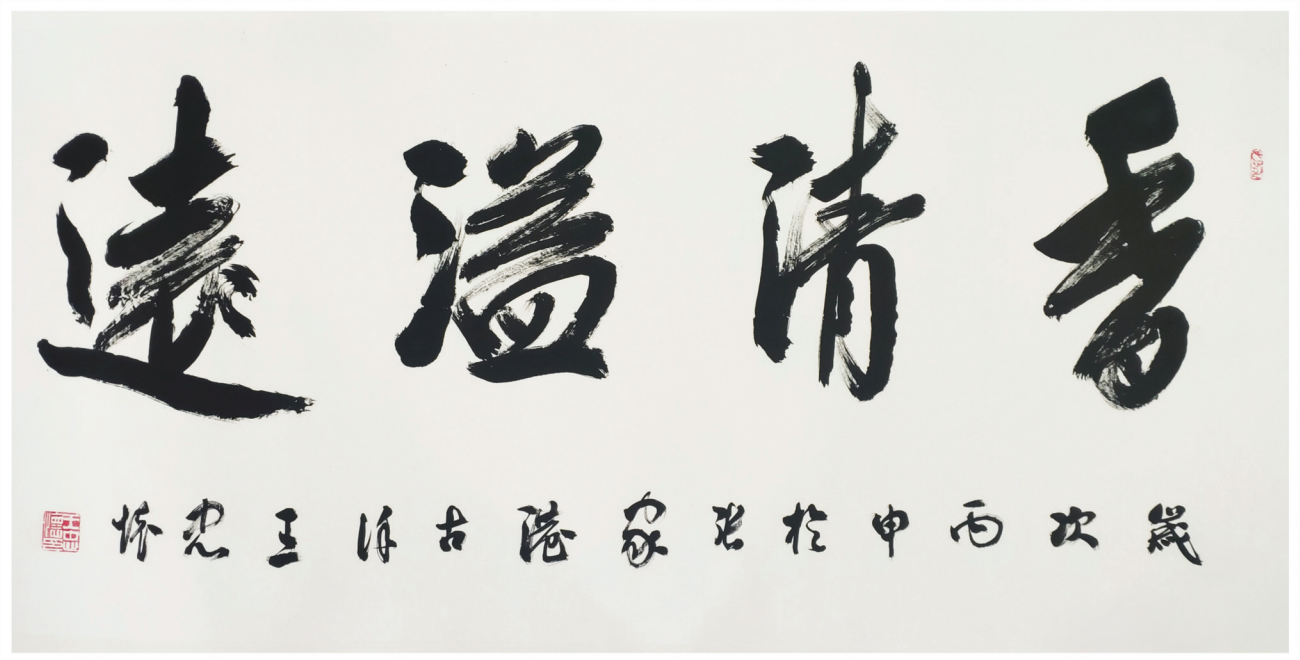 香清溢遠
歲次丙申於张家港古王忠怀